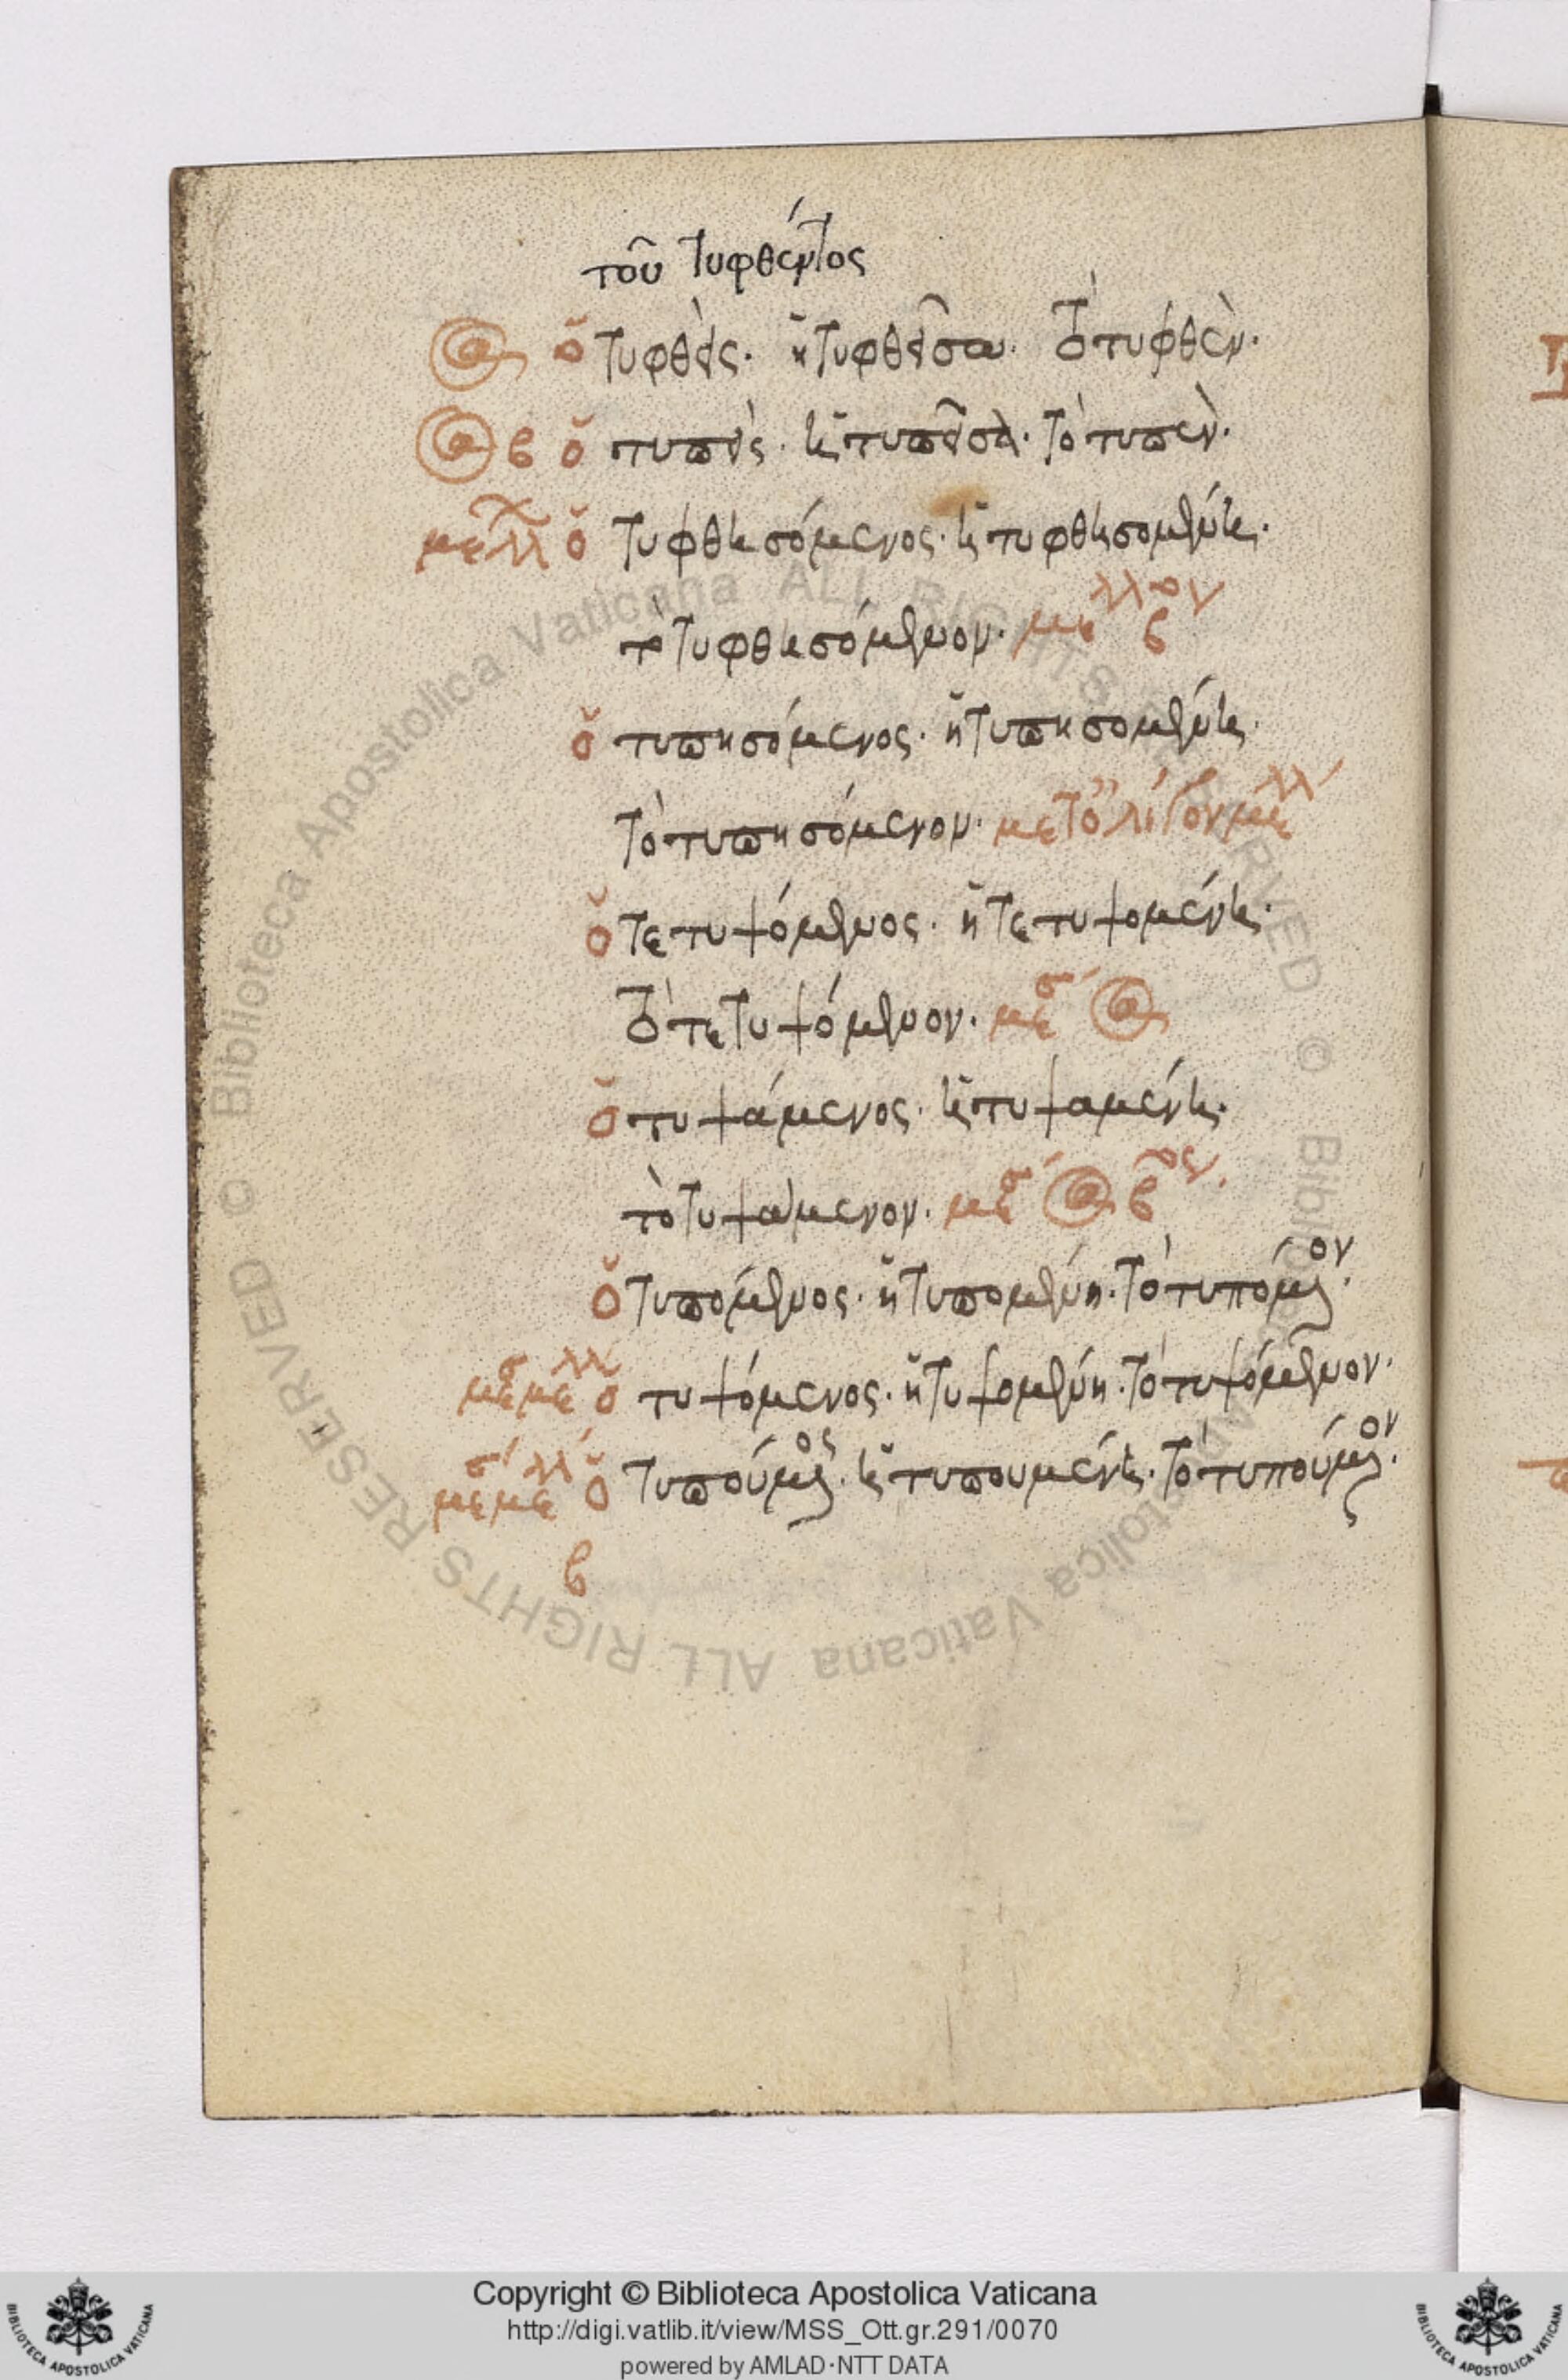 τοῦ τυφθέντος
ὁ τυφθεὶς. ἡ τυφθεῖσα. τὸ τυφθὲν.
β ὁ τυπεὶς. ἡ τυπεῖσα. τὸ τυπὲν.
μελλ ὁ τυφθησόμενος. ἡ τυφθησομένη.
τὸ τυφθησόμενον. μελλον β
ὁ τυπησόμενος. ἡ τυπησομένη.
τὸ τυπησόμενον. μετ ὀλίγον μελλ
ὁ τετυψόμενος. ἡ τετυψομένη.
τὸ τετυψόμενον. μεσ
ὁ τυψάμενος. ἡ τυψαμένη.
τὸ τυψάμενον. μεσ β
ὁ τυπόμενος. ἡ τυπομένη. τὸ τυπόμενον.
μεσ μελλ ὁ τυψόμενος. ἡ τυψομένη. τὸ τυψόμενον.
μεσ μελλ ὁ τυπούμενος. ἡ τυπουμένη. τὸ τυπούμενον.
β
Copyright © Biblioteca Apostolica Vaticana
http://digi.vatlib.it/view/MSS_Ott.gr.291/0070
powered by AMLAD·NTT DATA